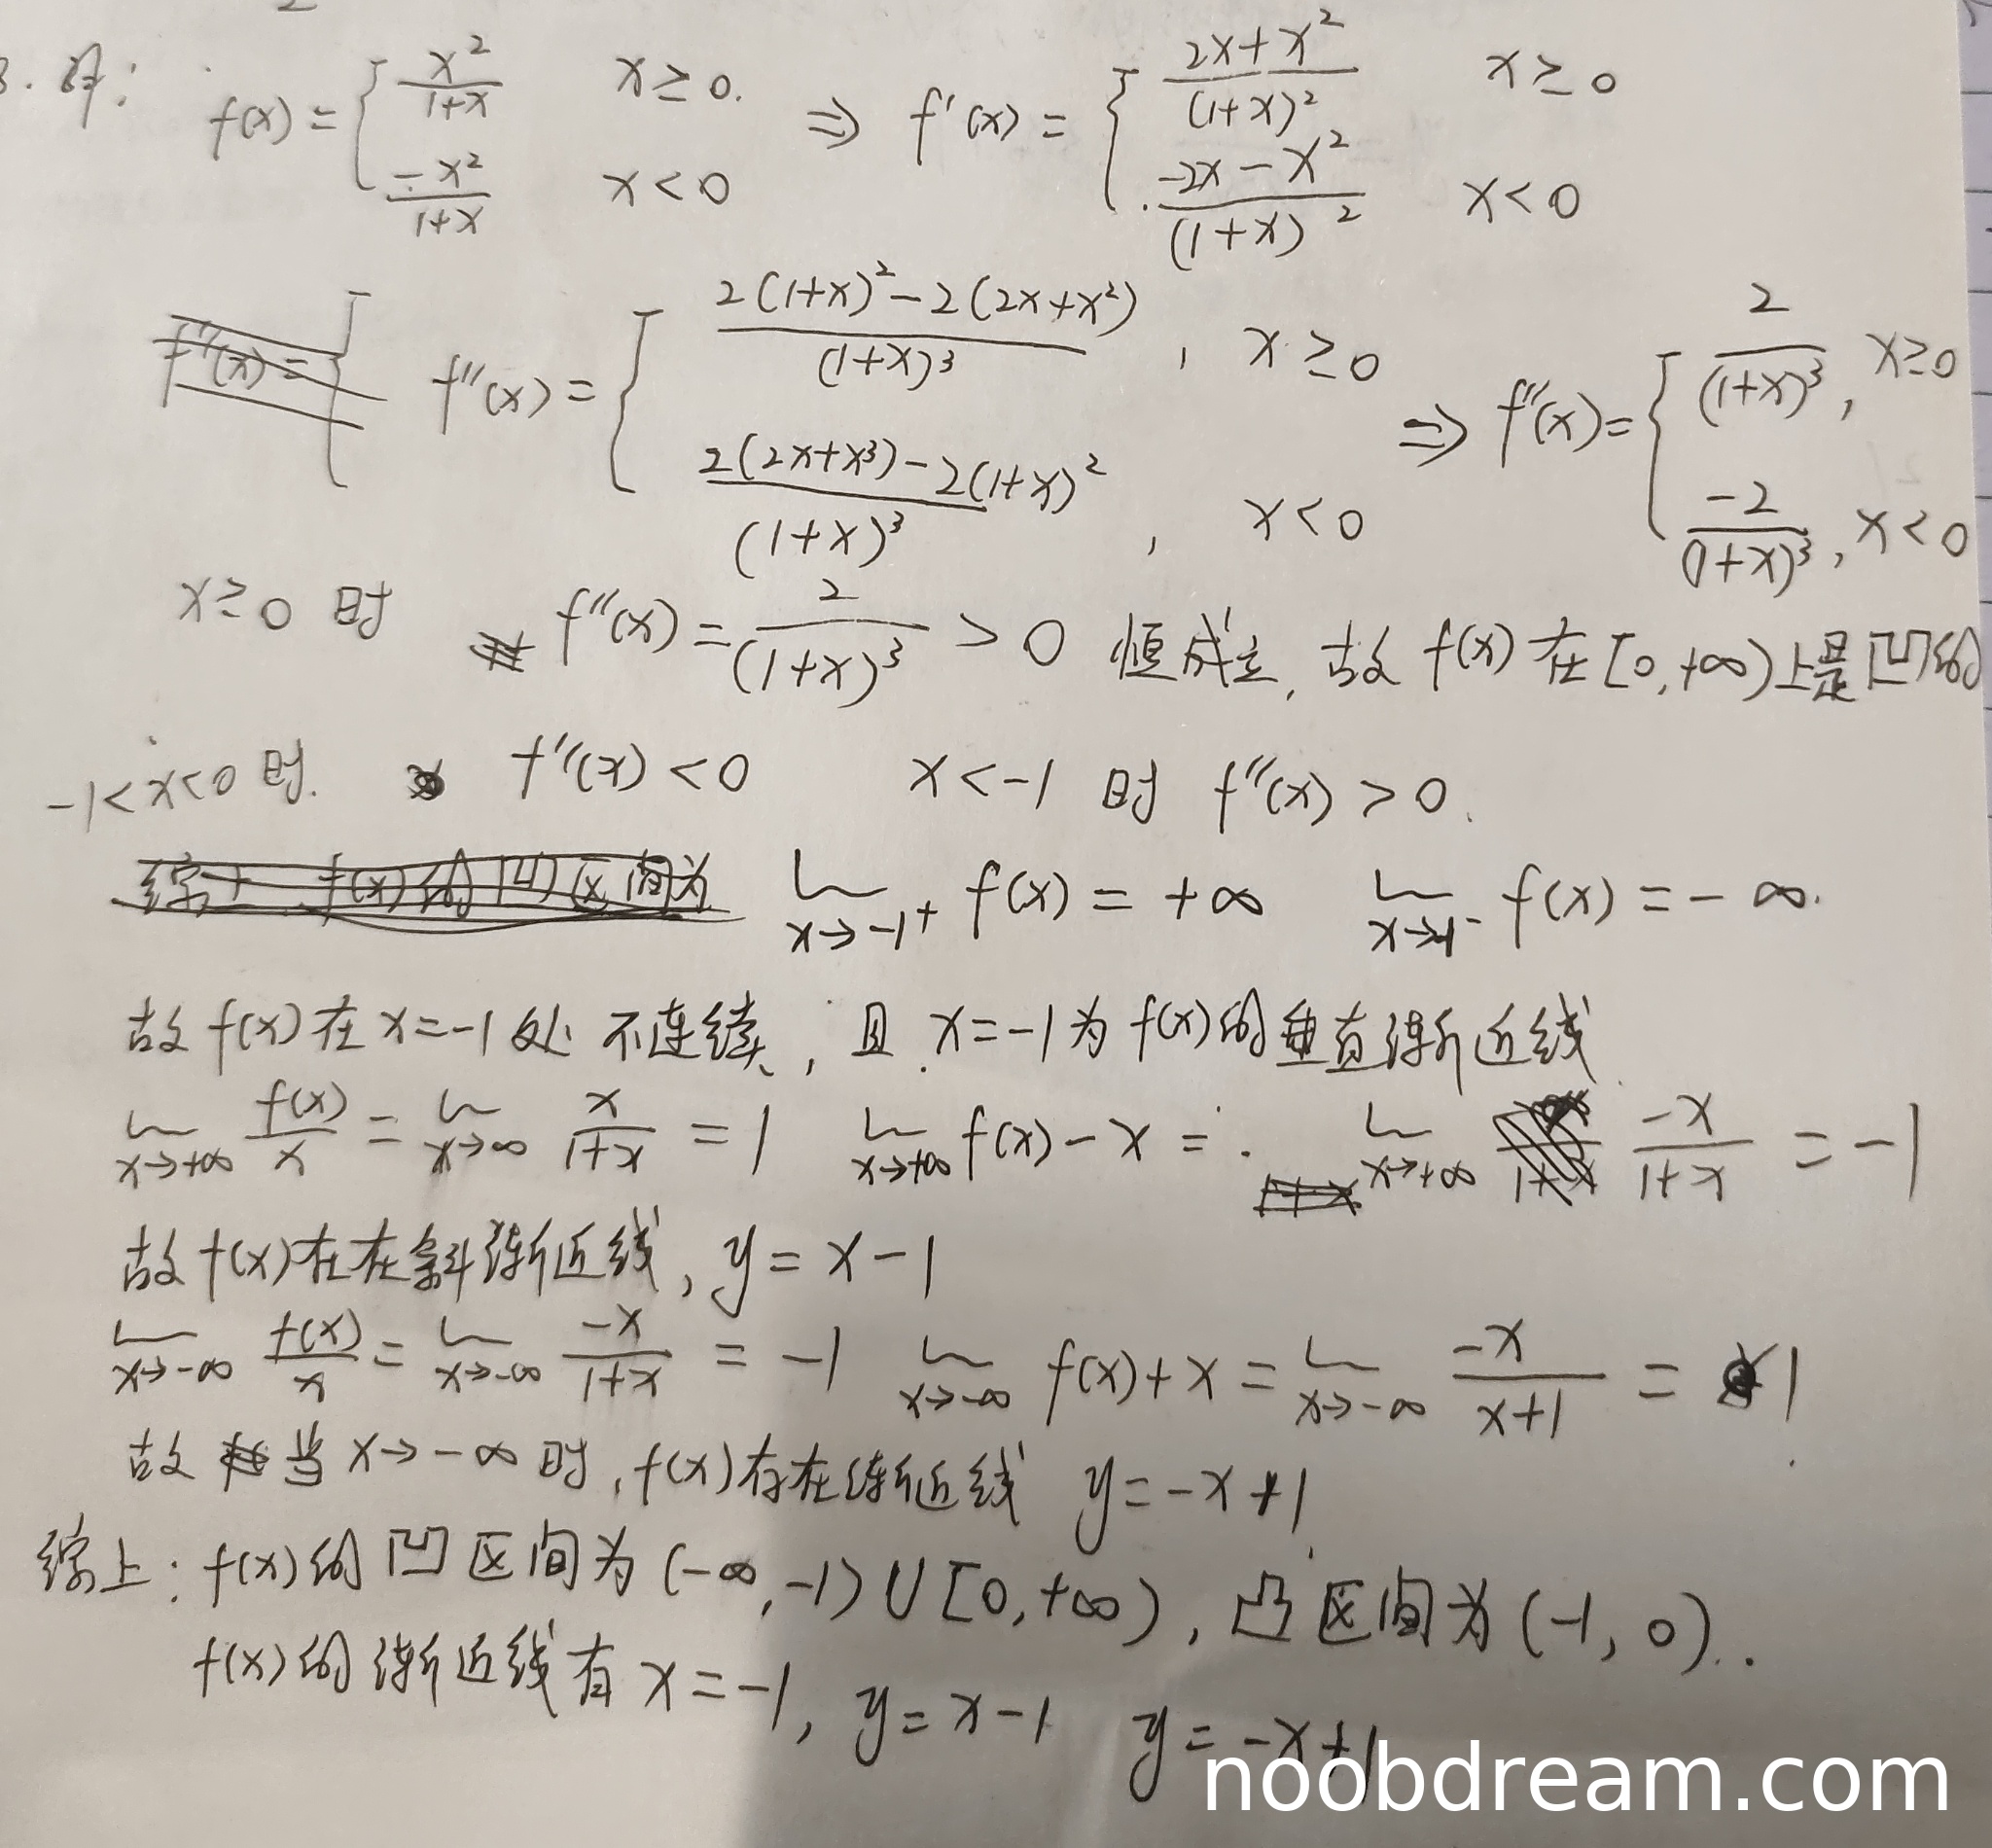 3. 解:
f(x) = { x²/(1+x)  x ≥ 0.  -x²/(1+x)  x < 0  ⇒ f'(x) = { (2x+x²)/(1+x)²  x ≥ 0  (-2x-x²)/(1+x)²  x < 0
f''(x) = { (2(1+x)²-2(2x+x²))/(1+x)³ , x ≥ 0  (2(2x+x³)-2(1+x)²)/(1+x)³ , x < 0  ⇒ f''(x) = { 2/(1+x)³, x ≥ 0  -2/(1+x)³, x < 0
x ≥ 0 时 f''(x) = 2/(1+x)³ > 0 恒成立, 故 f(x) 在 [0, +∞) 上是凹的
-1 < x < 0 时. f''(x) < 0 x < -1 时 f''(x) > 0.
lim x→-1⁺ f(x) = +∞ lim x→-1⁻ f(x) = -∞.
故 f(x) 在 x = -1 处 不连续, 且 x = -1 为 f(x) 的垂直渐近线
lim x→+∞ f(x)/x = lim x→∞ x/(1+x) = 1 lim x→+∞ f(x) - x = lim x→+∞ -x/(1+x) = -1
故 f(x) 在在斜渐近线, y = x - 1
lim x→-∞ f(x)/x = lim x→-∞ -x/(1+x) = -1 lim x→-∞ f(x) + x = lim x→-∞ -x/(x+1) = 1
故 当 x → -∞ 时, f(x) 存在渐近线 y = -x + 1
综上: f(x) 的 凹 区间为 (-∞, -1) ∪ [0, +∞), 凸 区间为 (-1, 0).
f(x) 的 渐近线有 x = -1, y = x - 1 y = -x + 1
noobdream.com